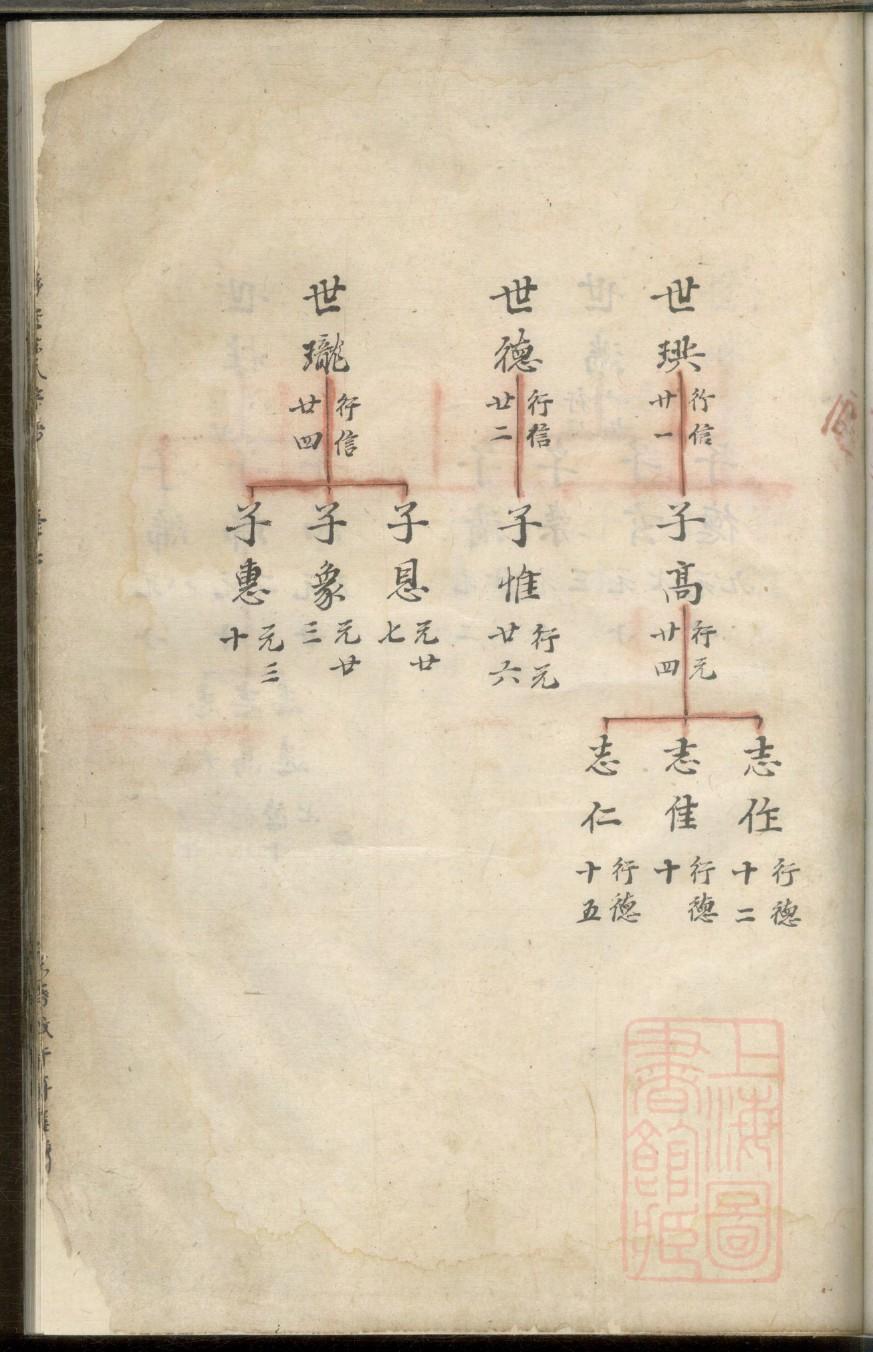 世珙
行信
廿一
子高
行元
廿四
志作
行德
十二
志佳
行德
十
志仁
行德
十五
世德
行信
廿二
子惟
行元
廿六
世瓏
行信
廿四
子恩
元廿
七
子象
元廿
三
子惠
元三
十
上海圖
書館藏